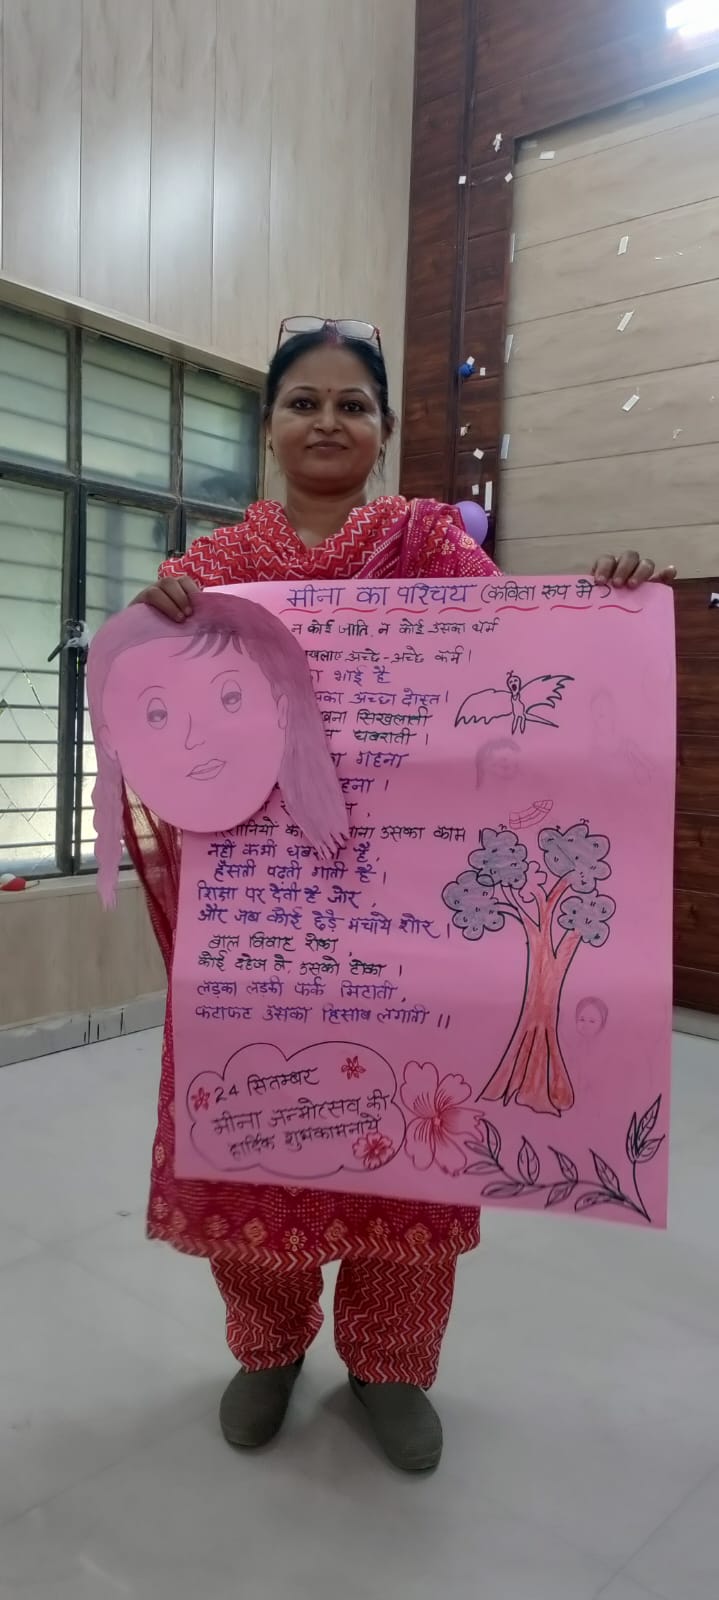 मीना का परिचय (कविता रूप मे)
न कोई जाति, न कोई उसका धर्म
अच्छे-अच्छे कर्म।
भाई है
अच्छा दोस्त।
सिखलाती
घबराती।
गहना
उसका काम।
नहीं कभी
हँसती पढ़ती गाती है।
शिक्षा पर देती है जोर,
और जब कोई छेड़े मचाये शोर।
बाल विवाह रोका,
कोई दहेज ले, उसको टोका।
लड़का लड़की फर्क मिटाती,
फटाफट उसका हिसाब लगाती॥
24 सितम्बर
मीना जन्मोत्सव की
हार्दिक शुभकामनायें